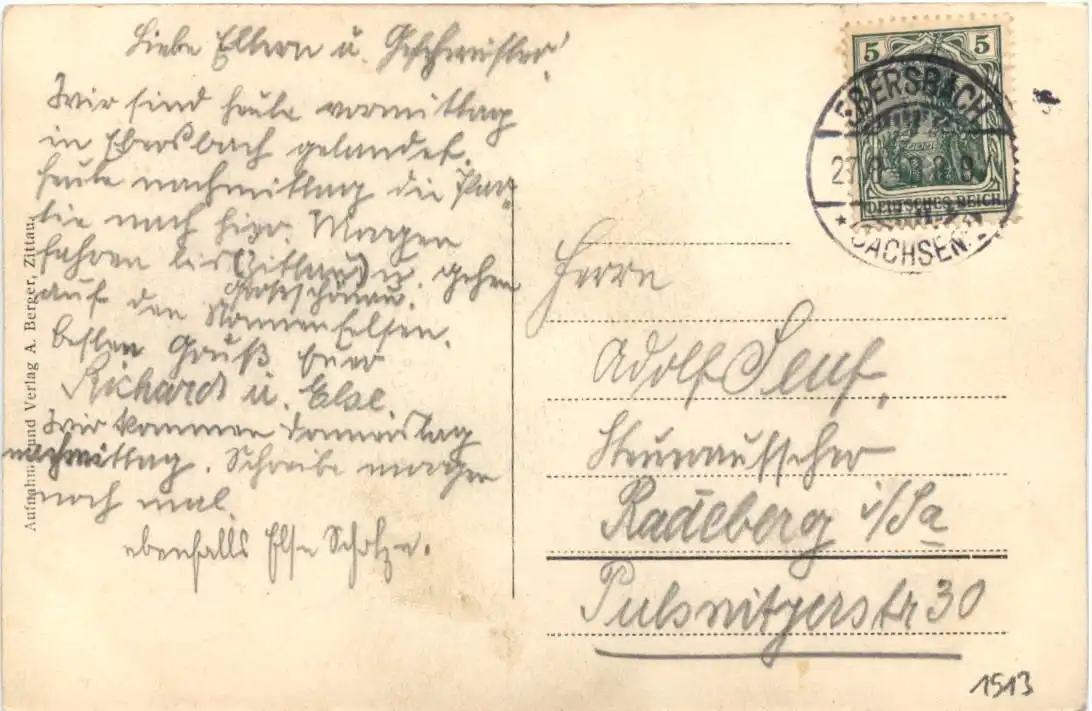 Liebe Eltern u. Geschwister!
Wir sind heute vormittag
in Ebersbach gelandet.
heute nachmittag die Par-
tie nach hier. Morgen
fahren bis (Zittau) u. gehen
Großschönau.
auf den Nonnenfelsen.
besten Gruß Euer
Richard u. Else.
Wir kommen Donnerstag
nachmittag. Schreibe morgen
noch mal.
ebenfalls Else Scholze.
Aufnahme und Verlag A. Berger, Zittau.
5 5
DEUTSCHES REICH
EBERSBACH
SACHSEN
Herrn
Adolf
Steueraufseher
Radeberg i/Sa
Pulsnitzerstr 30
1513